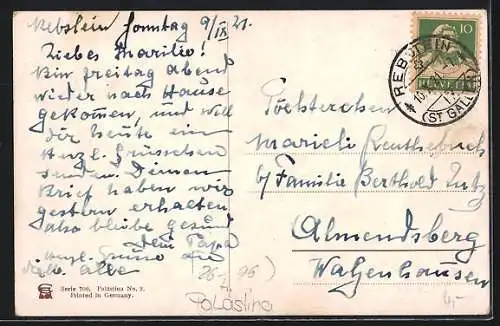 Rebstein Sonntag 9/IX 21.
Liebes Marilio!
Bin freitag abend
wieder nach Hause
gekomen, und will
dir heute ein
Herzl. Grüsschen
senden. Deinen
Brief haben wir
gestern erhalten
also bleibe gesund
Dein Papa
herzl. an
alle
Serie 700, Palästina No. 2.
Printed in Germany.
10
HELVETIA
REBSTEIN
(ST GALLEN)
Töchterchen
Marieli
b/ Familie Berthold Lutz
Almendsberg
Walzenhausen
Palästina